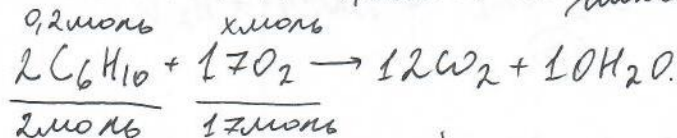 0,2моль xмоль
2C₆H₁₀ + 17O₂ → 12CO₂ + 10H₂O.
2моль 17моль